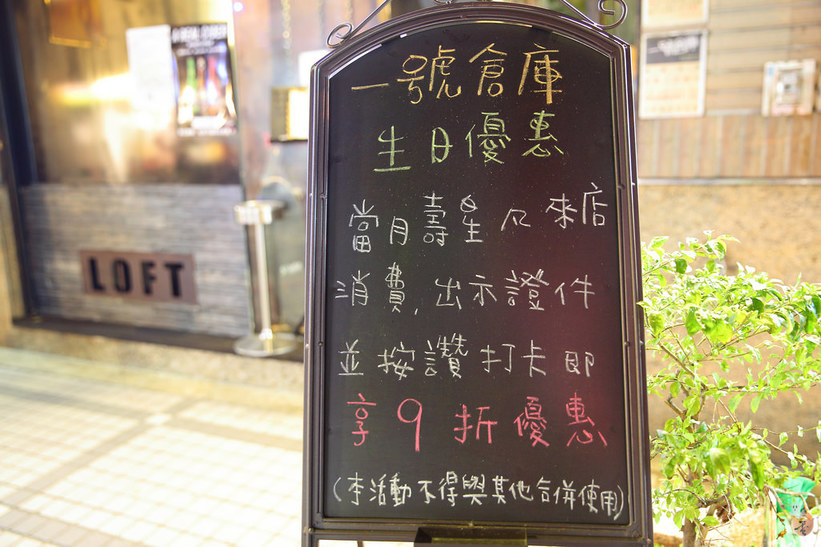 一號倉庫
生日優惠
當月壽星凡來店
消費,出示證件
並按讚打卡即
享9折優惠
(本活動不得與其他合併使用)
LOFT